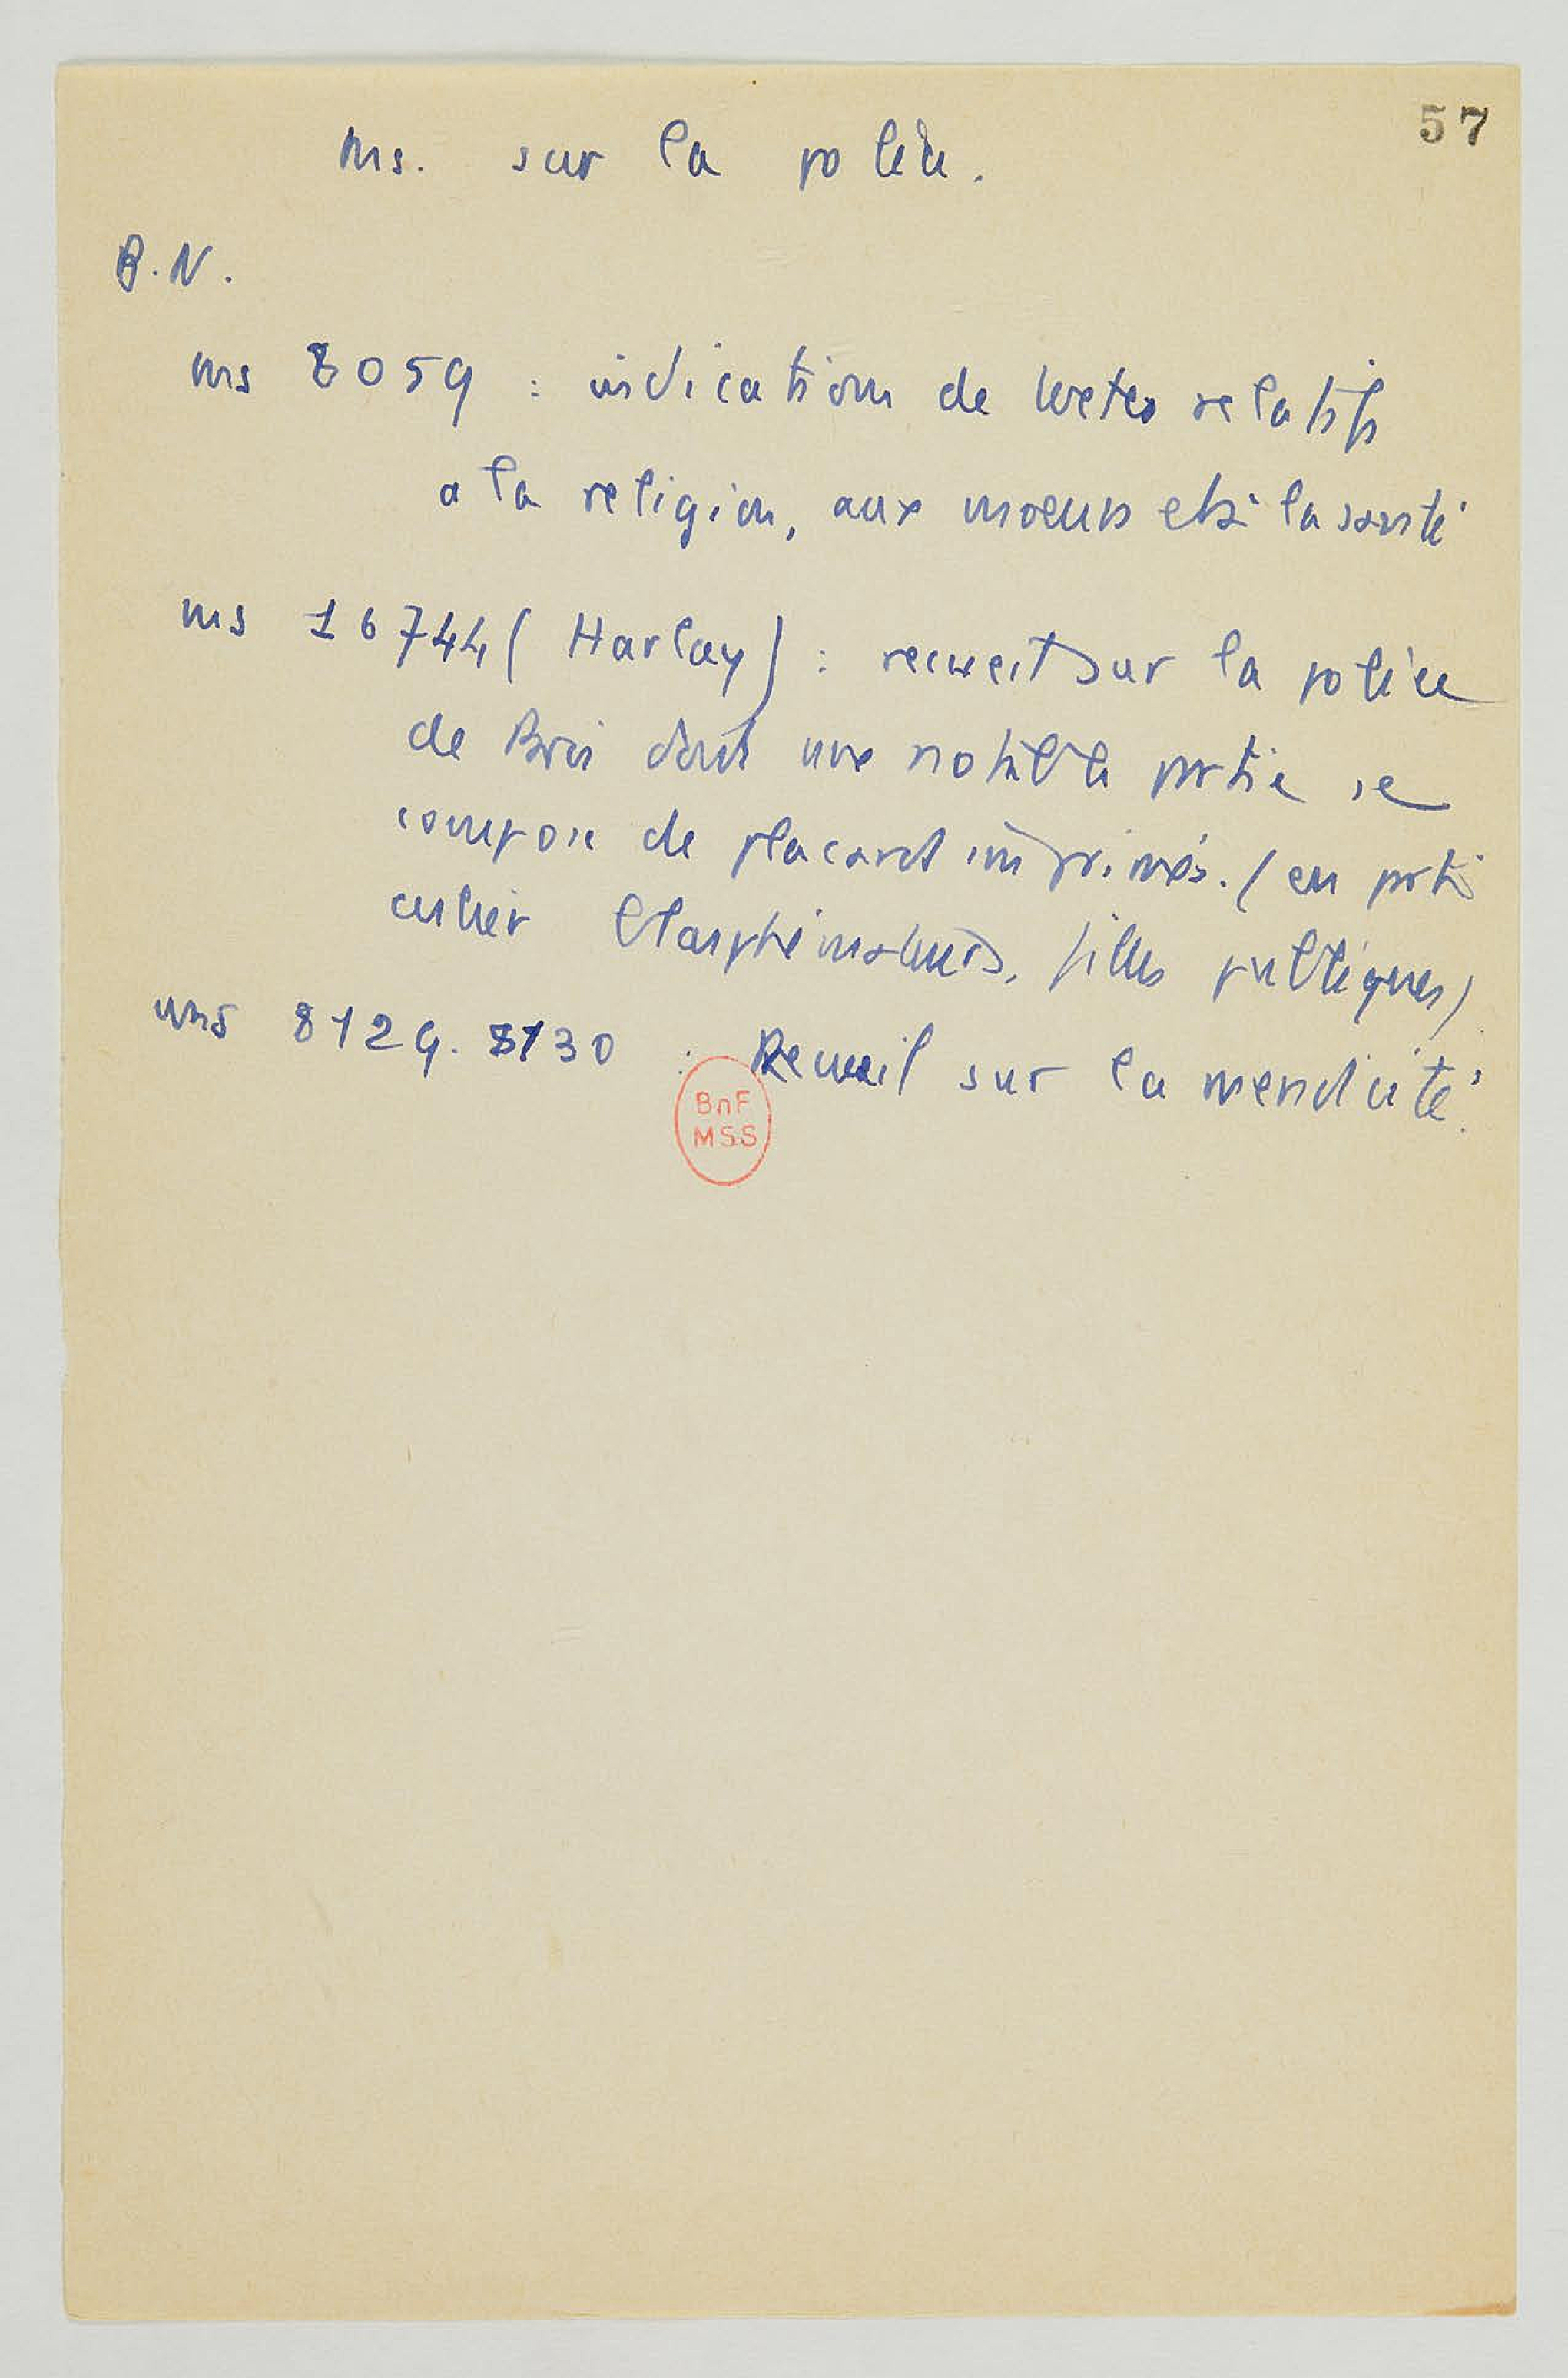 57
ms. sur la police.
B.N.
ms 8059 : indication de textes relatifs
a la religion, aux moeurs et à la santé
ms 16744 ( Harlay) : recueil sur la police
de Paris dont une notable partie se
compose de placards imprimés. (en parti
culier blasphémateurs, filles publiques)
ms 8129. 8130 : Recueil sur la mendicité.
BnF
MSS